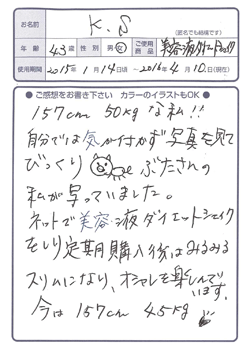 お名前 K.S
(匿名でも結構です)
年齢 43才 性別 男・女 ご使用商品 美容液ダイエットシェイク
使用期間 2015年1月14日頃 ～ 2016年4月10日(現在)
●ご感想をお書き下さい カラーのイラストもOK●
157cm 50kgな私!!
自分では気が付かず写真を見て
びっくり ぶたさんの
私が写っていました。
ネットで美容液ダイエットシェイク
をしり定期購入後はみるみる
スリムになり、オシャレを楽しんで
います。
今は157cm 45kg